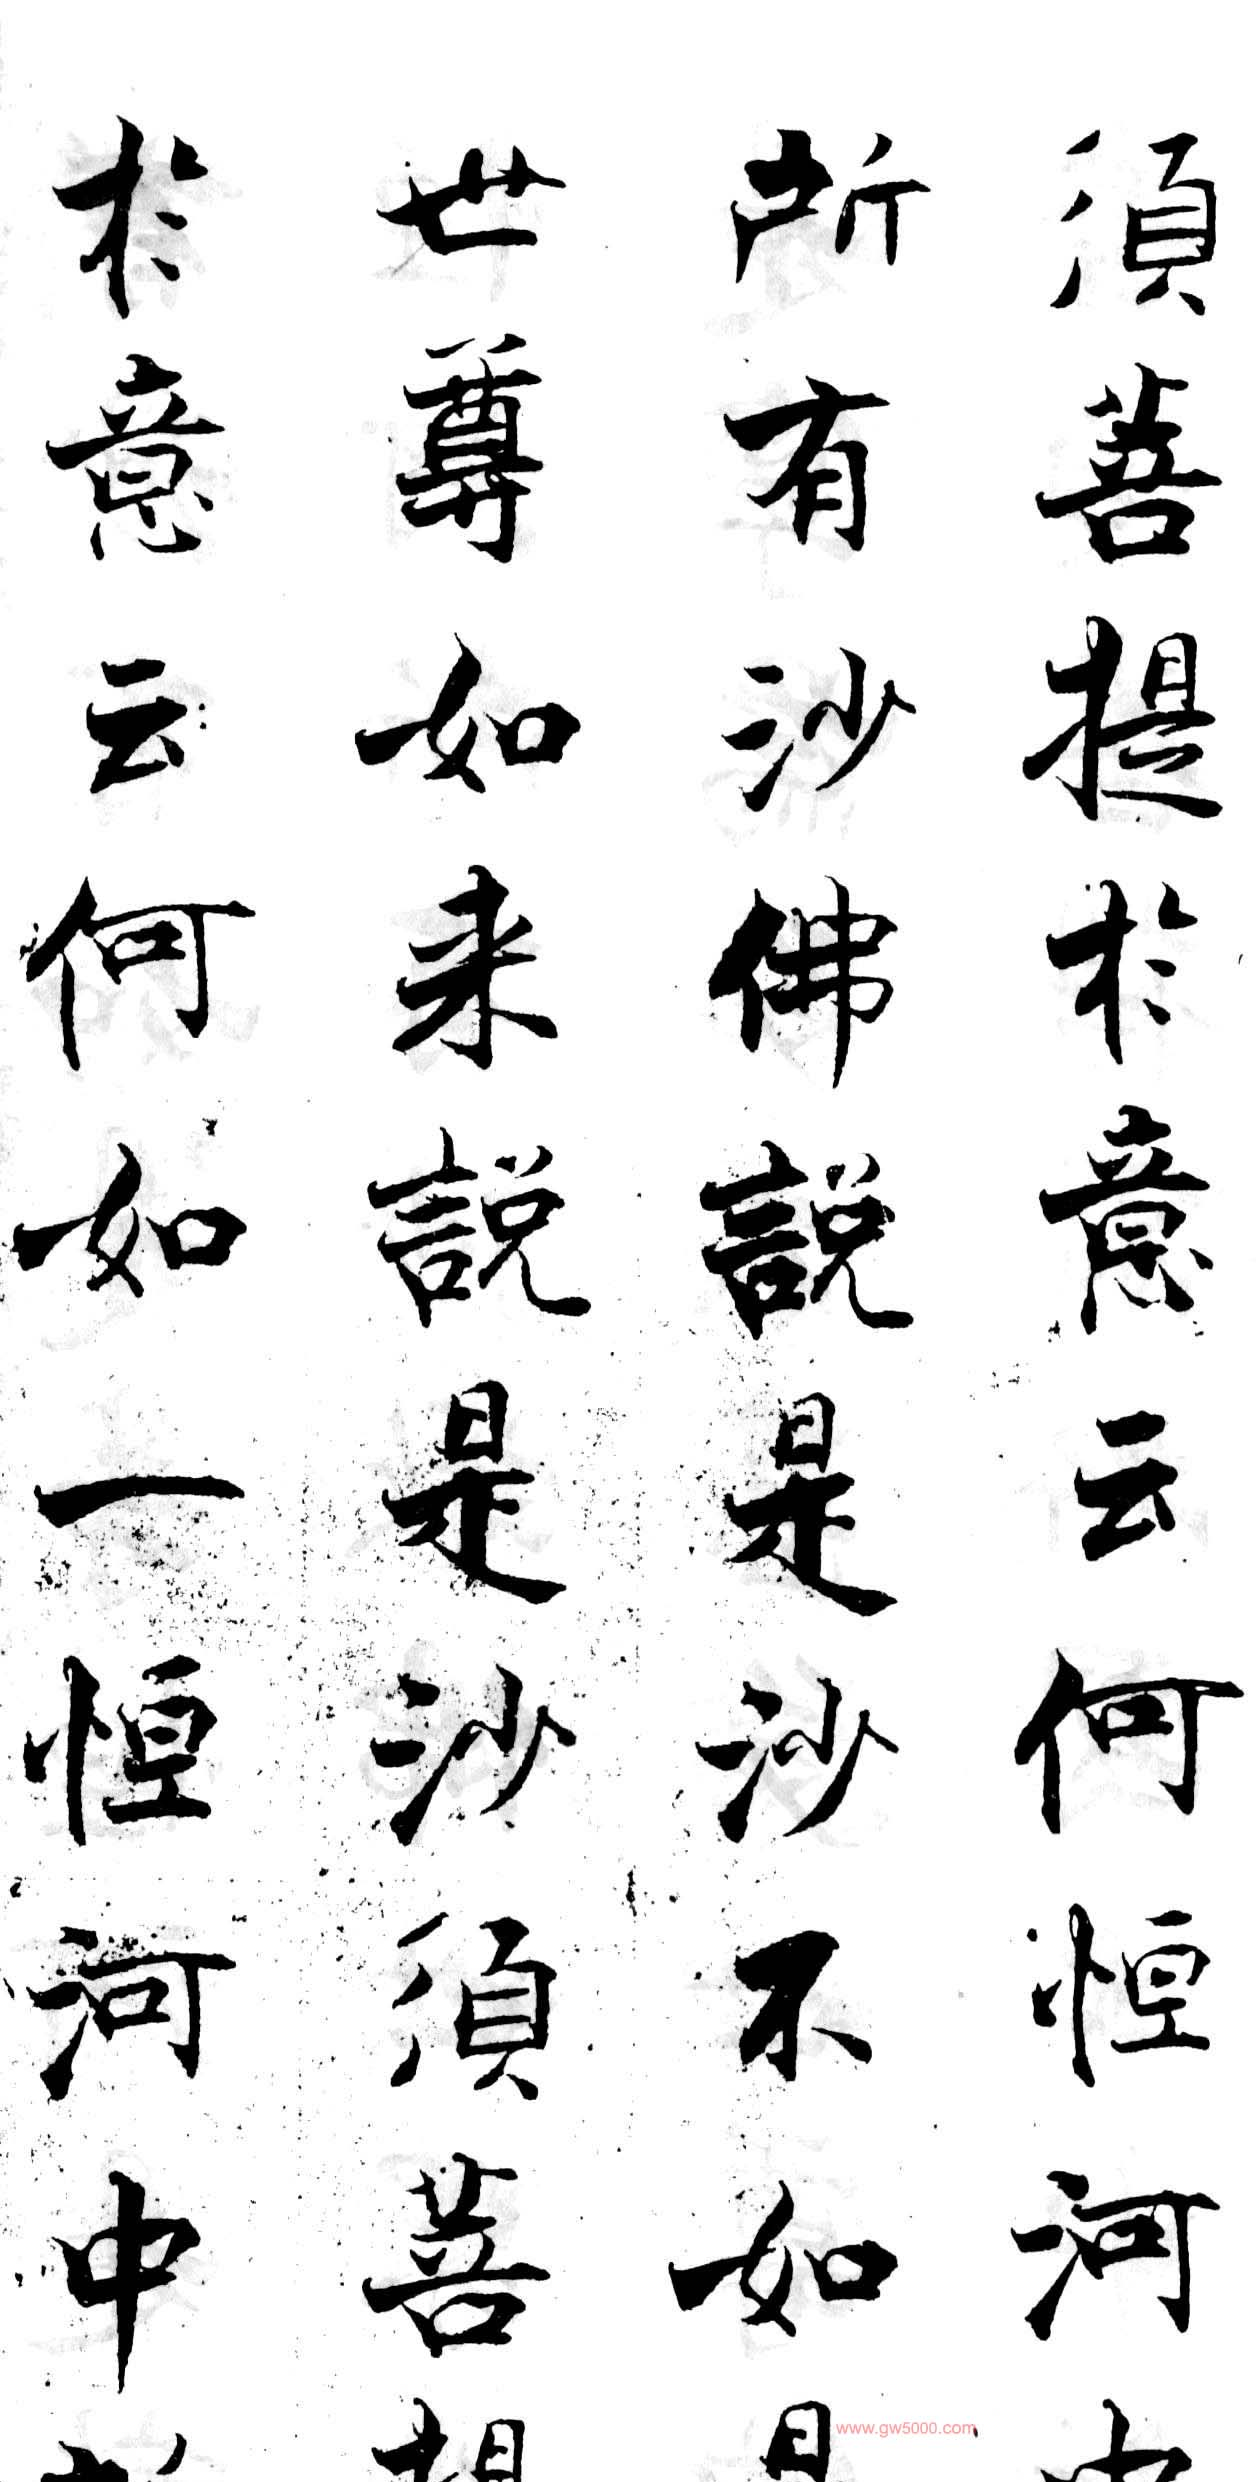 須菩提於意云何恒河中
所有沙佛説是沙不如是
世尊如来説是沙須菩提
於意云何如一恒河中所
www.gw5000.com